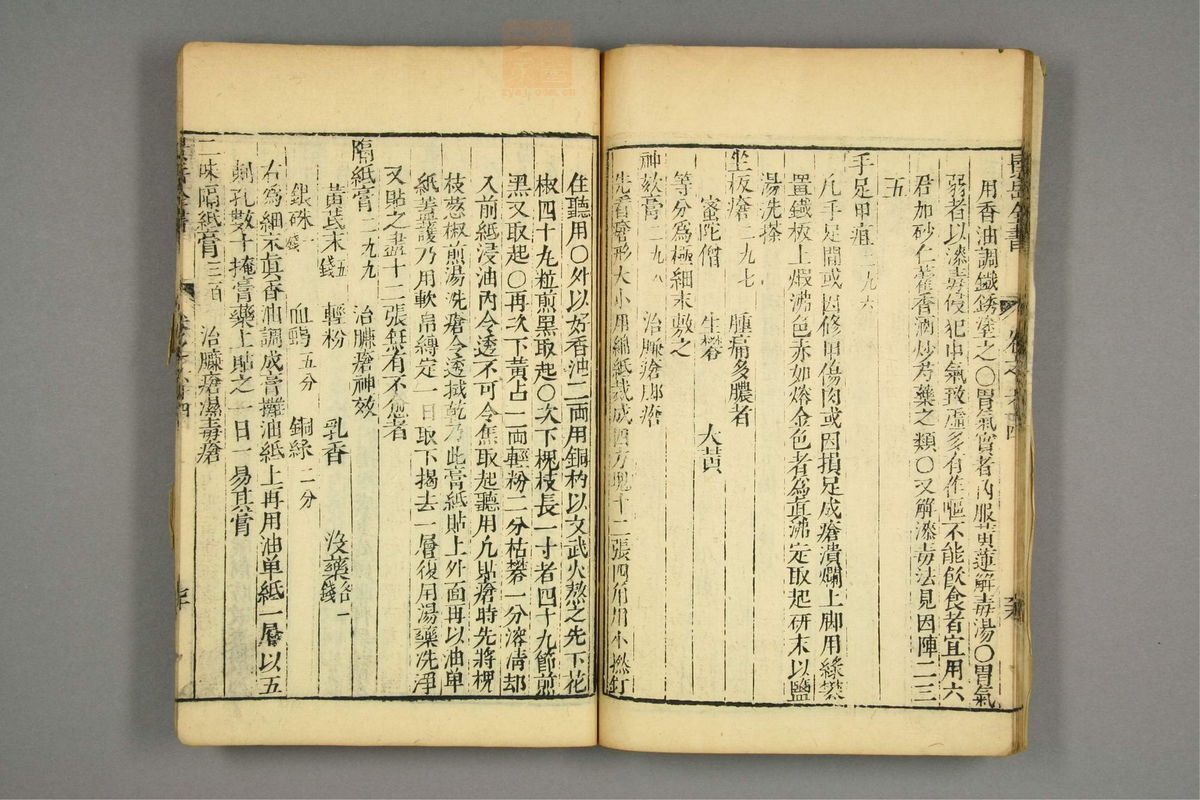 景岳全書 卷之六十四
用香油調鐵銹塗之〇胃氣實者内服黄蓮解毒湯〇胃氣
弱者以漆毒侵犯中氣致虛多有作嘔不能飲食者宜用六
君加砂仁藿香酒炒芍藥之類〇又解漆毒法見因陣二三
五
手足甲疽二九六
凡手足間或因修甲傷肉或因損足成瘡潰爛上脚用綠礬
置鐵板上煆沸色赤如熔金色者為真沸定取起研末以鹽
湯洗搽
坐板瘡二九七 腫痛多膿者
蜜陀僧 生礬 大黄
等分爲極細末敷之
神效膏二九八 治臁瘡郎瘡
先看瘡形大小用綿紙裁成四方塊十二張四角用小撚釘
住聽用〇外以好香油二兩用銅杓以文武火熬之先下花
椒四十九粒煎黑取起〇次下槐枝長一寸者四十九節煎
黑又取起〇再次下黄占一兩輕粉二分枯礬一分溶清却
入前紙浸油内令透不可令焦取起聽用凡貼瘡時先將槐
枝葱椒煎湯洗瘡令透拭乾乃此膏紙貼上外面再以油单
紙蓋護乃用軟帛縛定一日取下揭去一層復用湯藥洗淨
又貼之盡十二張無有不愈者
隔紙膏二九九 治臁瘡神效
黄芪末五錢 輕粉 乳香 没藥各一錢
銀硃一錢 血竭五分 銅綠二分
右為細末真香油調成膏攤油紙上再用油单紙一層以五
刺孔數十掩膏藥上貼之一日一易其膏
二味隔紙膏三百 治臁瘡濕毒瘡